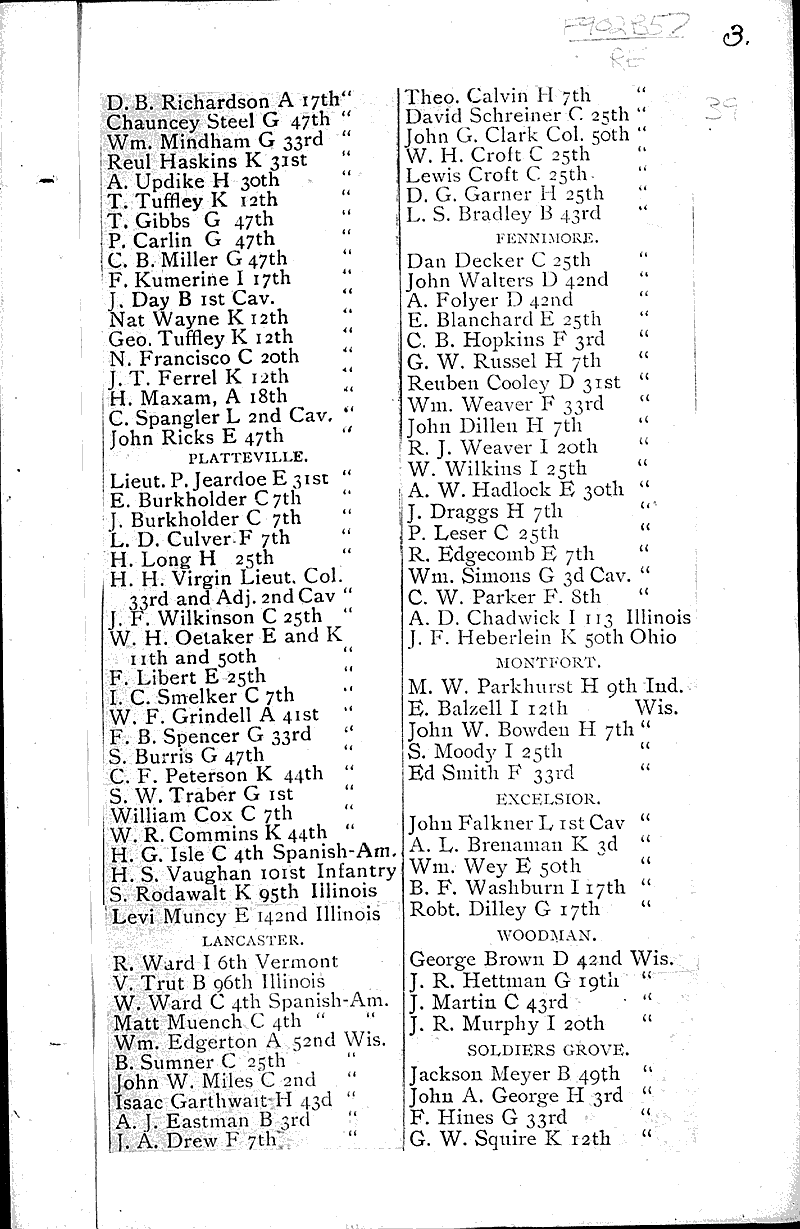 F902B57
RE
3.
39
D. B. Richardson A 17th “
Chauncey Steel G 47th “
Wm. Mindham G 33rd “
Reul Haskins K 31st “
A. Updike H 30th “
T. Tuffley K 12th “
T. Gibbs G 47th “
P. Carlin G 47th “
C. B. Miller G 47th “
F. Kumerine I 17th “
J. Day B 1st Cav. “
Nat Wayne K 12th “
Geo. Tuffley K 12th “
N. Francisco C 20th “
J. T. Ferrel K 12th “
H. Maxam, A 18th “
C. Spangler L 2nd Cav. “
John Ricks E 47th “
PLATTEVILLE.
Lieut. P. Jeardoe E 31st “
E. Burkholder C 7th “
J. Burkholder C 7th “
L. D. Culver F 7th “
H. Long H 25th “
H. H. Virgin Lieut. Col.
33rd and Adj. 2nd Cav “
J. F. Wilkinson C 25th “
W. H. Oetaker E and K
11th and 50th “
F. Libert E 25th “
I. C. Smelker C 7th “
W. F. Grindell A 41st “
F. B. Spencer G 33rd “
S. Burris G 47th “
C. F. Peterson K 44th “
S. W. Traber G 1st “
William Cox C 7th “
W. R. Commins K 44th “
H. G. Isle C 4th Spanish-Am.
H. S. Vaughan 101st Infantry
S. Rodawalt K 95th Illinois
Levi Muncy E 142nd Illinois
LANCASTER.
R. Ward I 6th Vermont
V. Trut B 96th Illinois
W. Ward C 4th Spanish-Am.
Matt Muench C 4th “ “
Wm. Edgerton A 52nd Wis.
B. Sumner C 25th “
John W. Miles C 2nd “
Isaac Garthwait H 43d “
A. J. Eastman B 3rd “
J. A. Drew F 7th “
Theo. Calvin H 7th “
David Schreiner C 25th “
John G. Clark Col. 50th “
W. H. Croft C 25th “
Lewis Croft C 25th “
D. G. Garner H 25th “
L. S. Bradley B 43rd “
FENNIMORE.
Dan Decker C 25th “
John Walters D 42nd “
A. Folyer D 42nd “
E. Blanchard E 25th “
C. B. Hopkins F 3rd “
G. W. Russel H 7th “
Reuben Cooley D 31st “
Wm. Weaver F 33rd “
John Dillen H 7th “
R. J. Weaver I 20th “
W. Wilkins I 25th “
A. W. Hadlock E 30th “
J. Draggs H 7th “
P. Leser C 25th “
R. Edgecomb E 7th “
Wm. Simons G 3d Cav. “
C. W. Parker F. 8th “
A. D. Chadwick I 113 Illinois
J. F. Heberlein K 50th Ohio
MONTFORT.
M. W. Parkhurst H 9th Ind.
E. Balzell I 12th Wis.
John W. Bowden H 7th “
S. Moody I 25th “
Ed Smith F 33rd “
EXCELSIOR.
John Falkner L 1st Cav “
A. L. Brenaman K 3d “
Wm. Wey E 50th “
B. F. Washburn I 17th “
Robt. Dilley G 17th “
WOODMAN.
George Brown D 42nd Wis.
J. R. Hettman G 19th “
J. Martin C 43rd “
J. R. Murphy I 20th “
SOLDIERS GROVE.
Jackson Meyer B 49th “
John A. George H 3rd “
F. Hines G 33rd “
G. W. Squire K 12th “